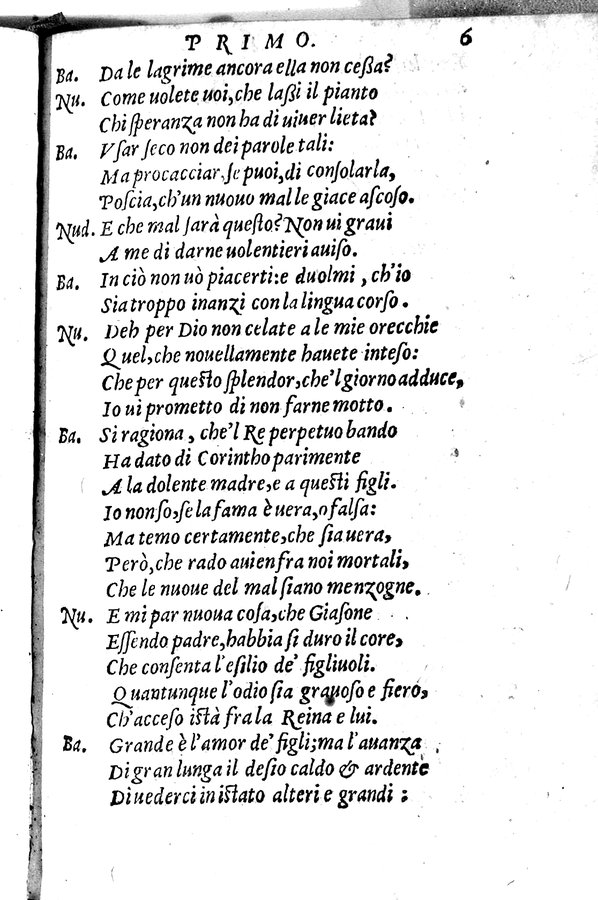 PRIMO. 6
Ba. Da le lagrime ancora ella non ceßa?
Nu. Come uolete uoi,che laßi il pianto
Chi ſperanza non ha di uiuer lieta?
Ba. Vſar ſeco non dei parole tali:
Ma procacciar,ſe puoi,di conſolarla,
Poſcia,ch'un nuouo mal le giace aſcoſo.
Nud. E che mal ſarà queſto? Non ui graui
A me di darne uolentieri auiſo.
Ba. In ciò non uò piacerti:e duolmi, ch'io
Sia troppo inanzi con la lingua corſo.
Nu. Deh per Dio non celate a le mie orecchie
Quel,che nouellamente hauete inteſo:
Che per queſto ſplendor,che'l giorno adduce,
Io ui prometto di non farne motto.
Ba. Si ragiona, che'l Re perpetuo bando
Ha dato di Corintho parimente
A la dolente madre,e a queſti figli.
Io non ſo,ſe la fama è uera,o falſa:
Ma temo certamente,che ſia uera,
Però,che rado auien fra noi mortali,
Che le nuoue del mal ſiano menzogne.
Nu. E mi par nuoua coſa,che Giaſone
Eſſendo padre,habbia ſi duro il core,
Che conſenta l'eſilio de' figliuoli.
Quantunque l'odio ſia grauoſo e fiero,
Ch'acceſo iſtà fra la Reina e lui.
Ba. Grande è l'amor de' figli;ma l'auanza
Di gran lunga il deſio caldo & ardente
Di uederci in iſtato alteri e grandi: